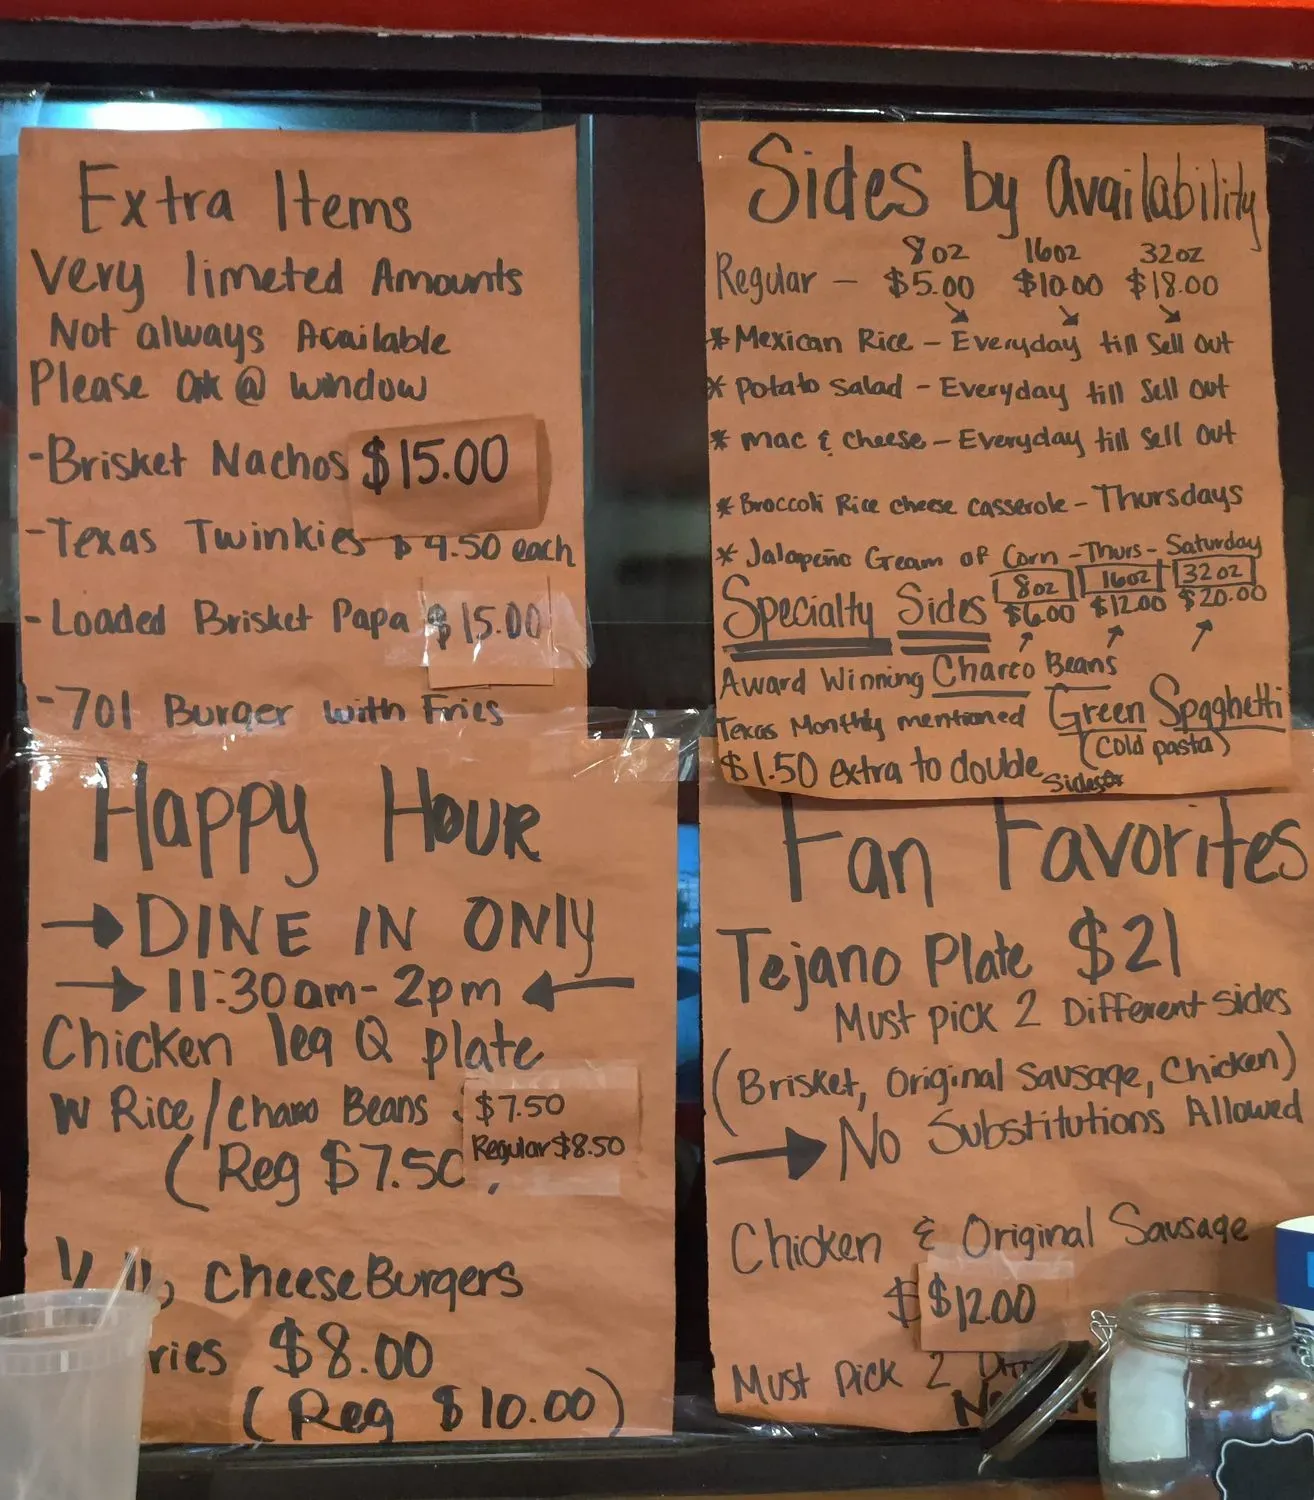 Extra Items
Very limeted Amounts
Not always Available
Please ask @ window
-Brisket Nachos $15.00
-Texas Twinkies $4.50 each
-Loaded Brisket Papa $15.00
-701 Burger with Fries
Sides by Availability
8oz 16oz 32oz
Regular - $5.00 $10.00 $18.00
* Mexican Rice - Everyday till Sell Out
* Potato Salad - Everyday till Sell Out
* Mac & Cheese - Everyday till Sell Out
* Broccoli Rice Cheese Casserole - Thursdays
* Jalapeño Cream of Corn - Thurs - Saturday
Specialty Sides 8oz 16oz 32oz
$6.00 $12.00 $20.00
Award Winning Charco Beans
Texas Monthly mentioned Green Spaghetti
(Cold pasta)
$1.50 extra to double
Sides
Happy Hour
→ DINE IN ONLY
→ 11:30am-2pm ←
Chicken leg Q plate
w Rice/Charro Beans $7.50
Regular $8.50
(Reg $7.50
CheeseBurgers
ries $8.00
(Reg $10.00)
Fan Favorites
Tejano Plate $21
Must pick 2 Different Sides
(Brisket, Original Sausage, Chicken)
→ No Substitutions Allowed
Chicken & Original Sausage
$ $12.00
Must Pick 2